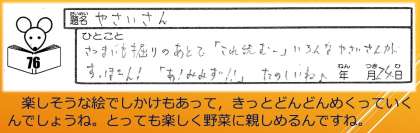 題名 やさいさん
だいめい
ひとこと
さつまいも掘りのあとで「これ読む〜」いろんなやさいさんが
すっぽーん!「あ!みみず!!」たのしいね♪
ねん がつ にち
年 月24日
76
楽しそうな絵でしかけもあって，きっとどんどんめくっていく
んでしょうね。とっても楽しく野菜に親しめるんですね。